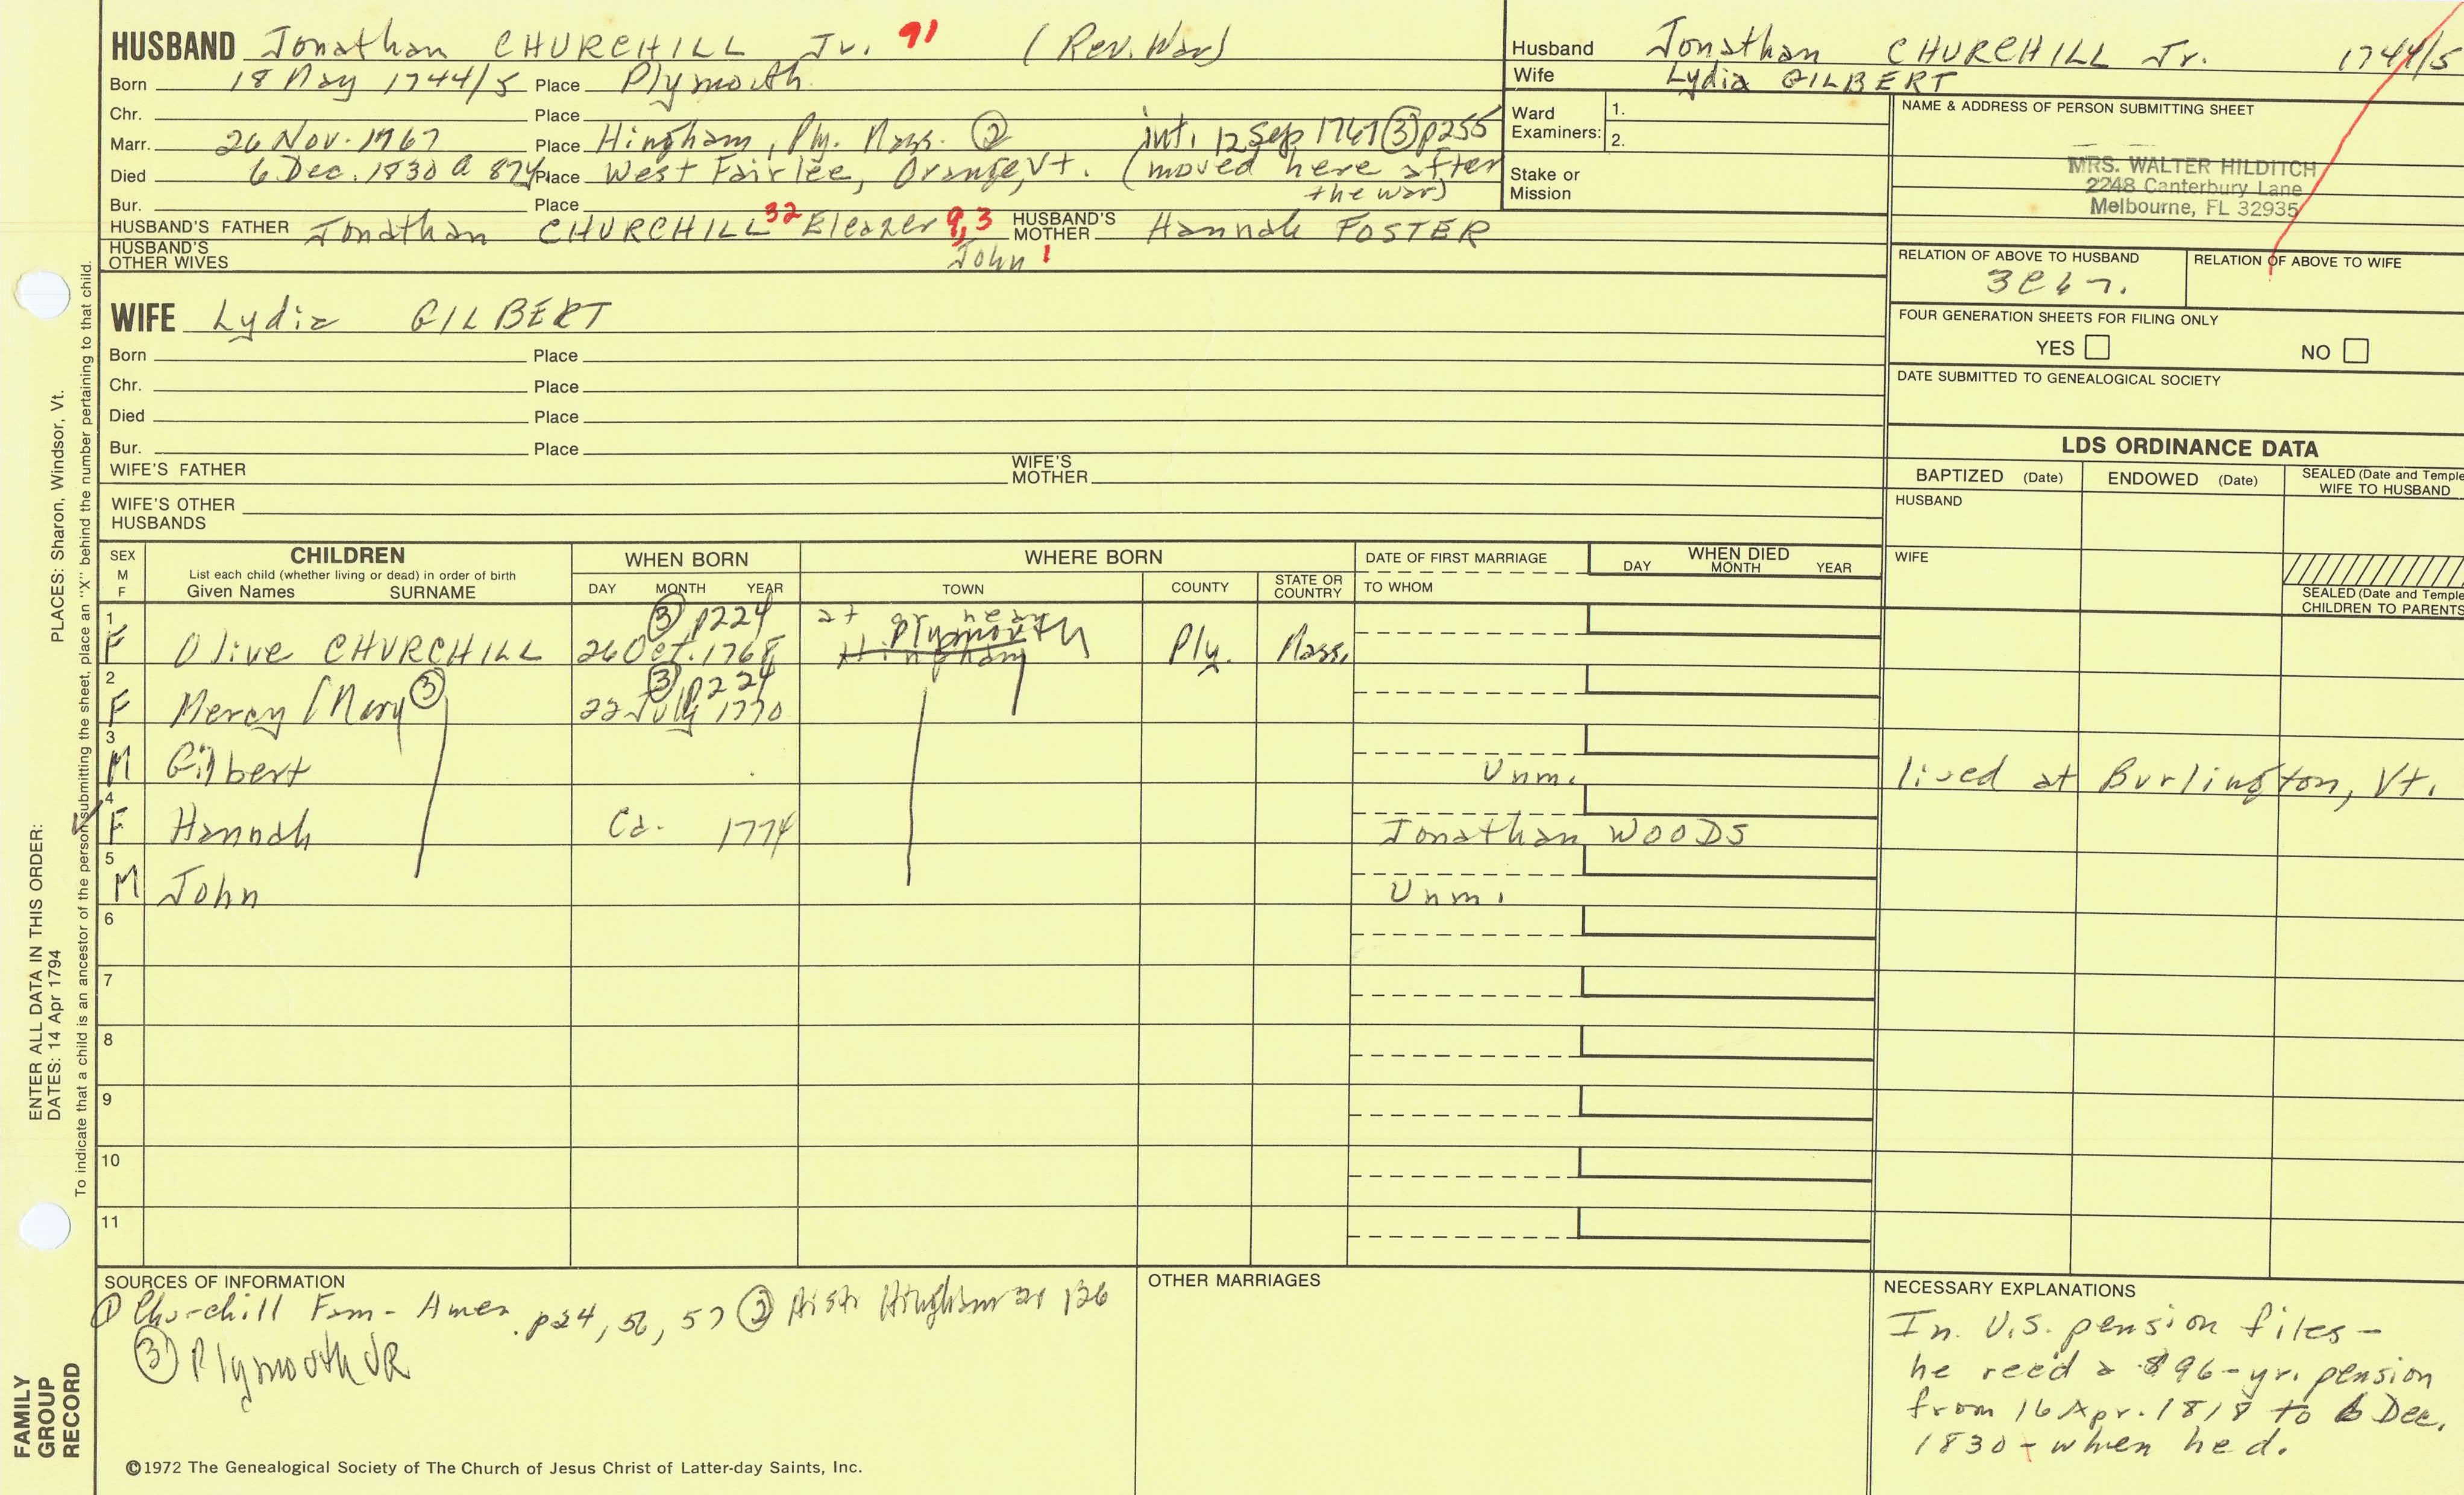 HUSBAND Jonathan CHURCHILL Jr. 91 (Rev. War)
Born 18 May 1744/5 Place Plymouth
Chr. Place
Marr. 26 Nov. 1767 Place Hingham, Ply. Mass. ② int. 12 Sep 1767 ③ p255
Died 6 Dec. 1830 a 87y Place West Fairlee, Orange, Vt. (moved here after
the war)
Bur. Place
HUSBAND'S FATHER Jonathan CHURCHILL 32 Eleazer 9,3 HUSBAND'S MOTHER Hannah FOSTER
John 1
HUSBAND'S OTHER WIVES
WIFE Lydia GILBERT
Born Place
Chr. Place
Died Place
Bur. Place
WIFE'S FATHER WIFE'S MOTHER
WIFE'S OTHER HUSBANDS
Husband Jonathan CHURCHILL Jr. 1744/5
Wife Lydia GILBERT
Ward Examiners: 1.
2.
Stake or Mission
NAME & ADDRESS OF PERSON SUBMITTING SHEET
MRS. WALTER HILDITCH
2248 Canterbury Lane
Melbourne, FL 32935
RELATION OF ABOVE TO HUSBAND RELATION OF ABOVE TO WIFE
FOUR GENERATION SHEETS FOR FILING ONLY
YES NO
DATE SUBMITTED TO GENEALOGICAL SOCIETY
LDS ORDINANCE DATA
BAPTIZED (Date) ENDOWED (Date) SEALED (Date and Temple
WIFE TO HUSBAND
HUSBAND
WIFE
SEALED (Date and Temple
CHILDREN TO PARENTS
SEX M F CHILDREN WHEN BORN WHERE BORN DATE OF FIRST MARRIAGE WHEN DIED
List each child (whether living or dead) in order of birth
Given Names SURNAME DAY MONTH YEAR TOWN COUNTY STATE OR COUNTRY TO WHOM DAY MONTH YEAR
③ p224 at or near
1 F Olive CHURCHILL 26 Oct. 1768 Plymouth Hingham Ply. Mass.
③ p224
2 F Mercy / Mary ③ 22 July 1770
3 M Gilbert Unm. lived at Burlington, Vt.
4 F Hannah Ca. 1774 Jonathan WOODS
5 M John Unm.
6
7
8
9
10
11
SOURCES OF INFORMATION
① Churchill Fam - Amer. p24, 56, 57 ② Hist. Hingham 136
③ Plymouth VR
OTHER MARRIAGES
NECESSARY EXPLANATIONS
In U.S. pension files -
he recd a $96-yr. pension
from 16 Apr. 1818 to 6 Dec.
1830 - when he d.
©1972 The Genealogical Society of The Church of Jesus Christ of Latter-day Saints, Inc.
FAMILY GROUP RECORD
ENTER ALL DATA IN THIS ORDER:
DATES: 14 Apr 1794
PLACES: Sharon, Windsor, Vt.
To indicate that a child is an ancestor of the person submitting the sheet, place an "X" behind the number pertaining to that child.